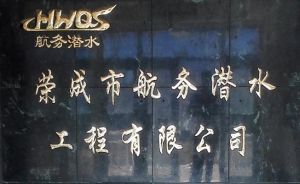 HWQS
航务潜水
荣成市航务潜水
工程有限公司